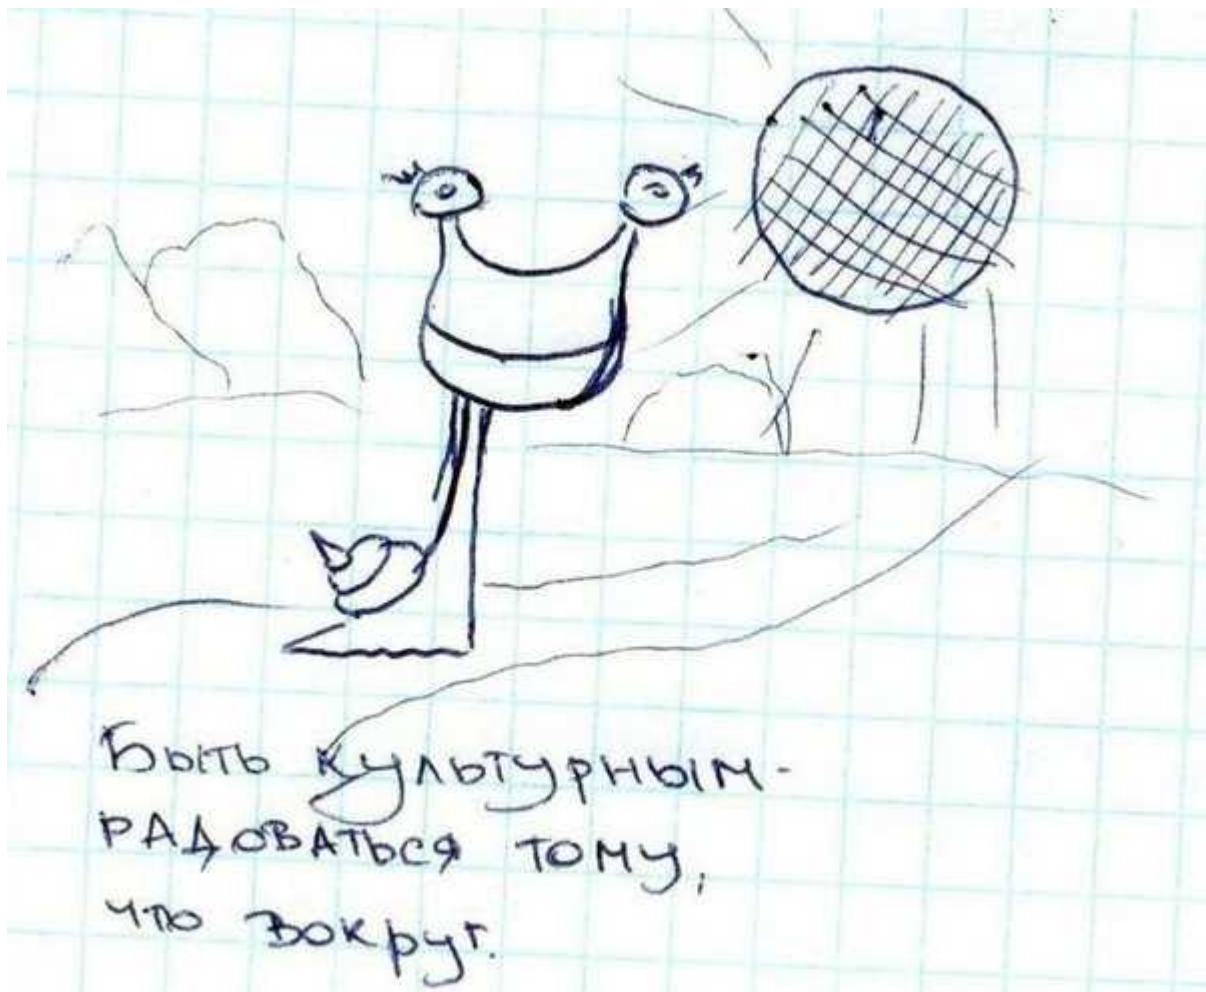 Быть культурным -
радоваться тому,
что вокруг.